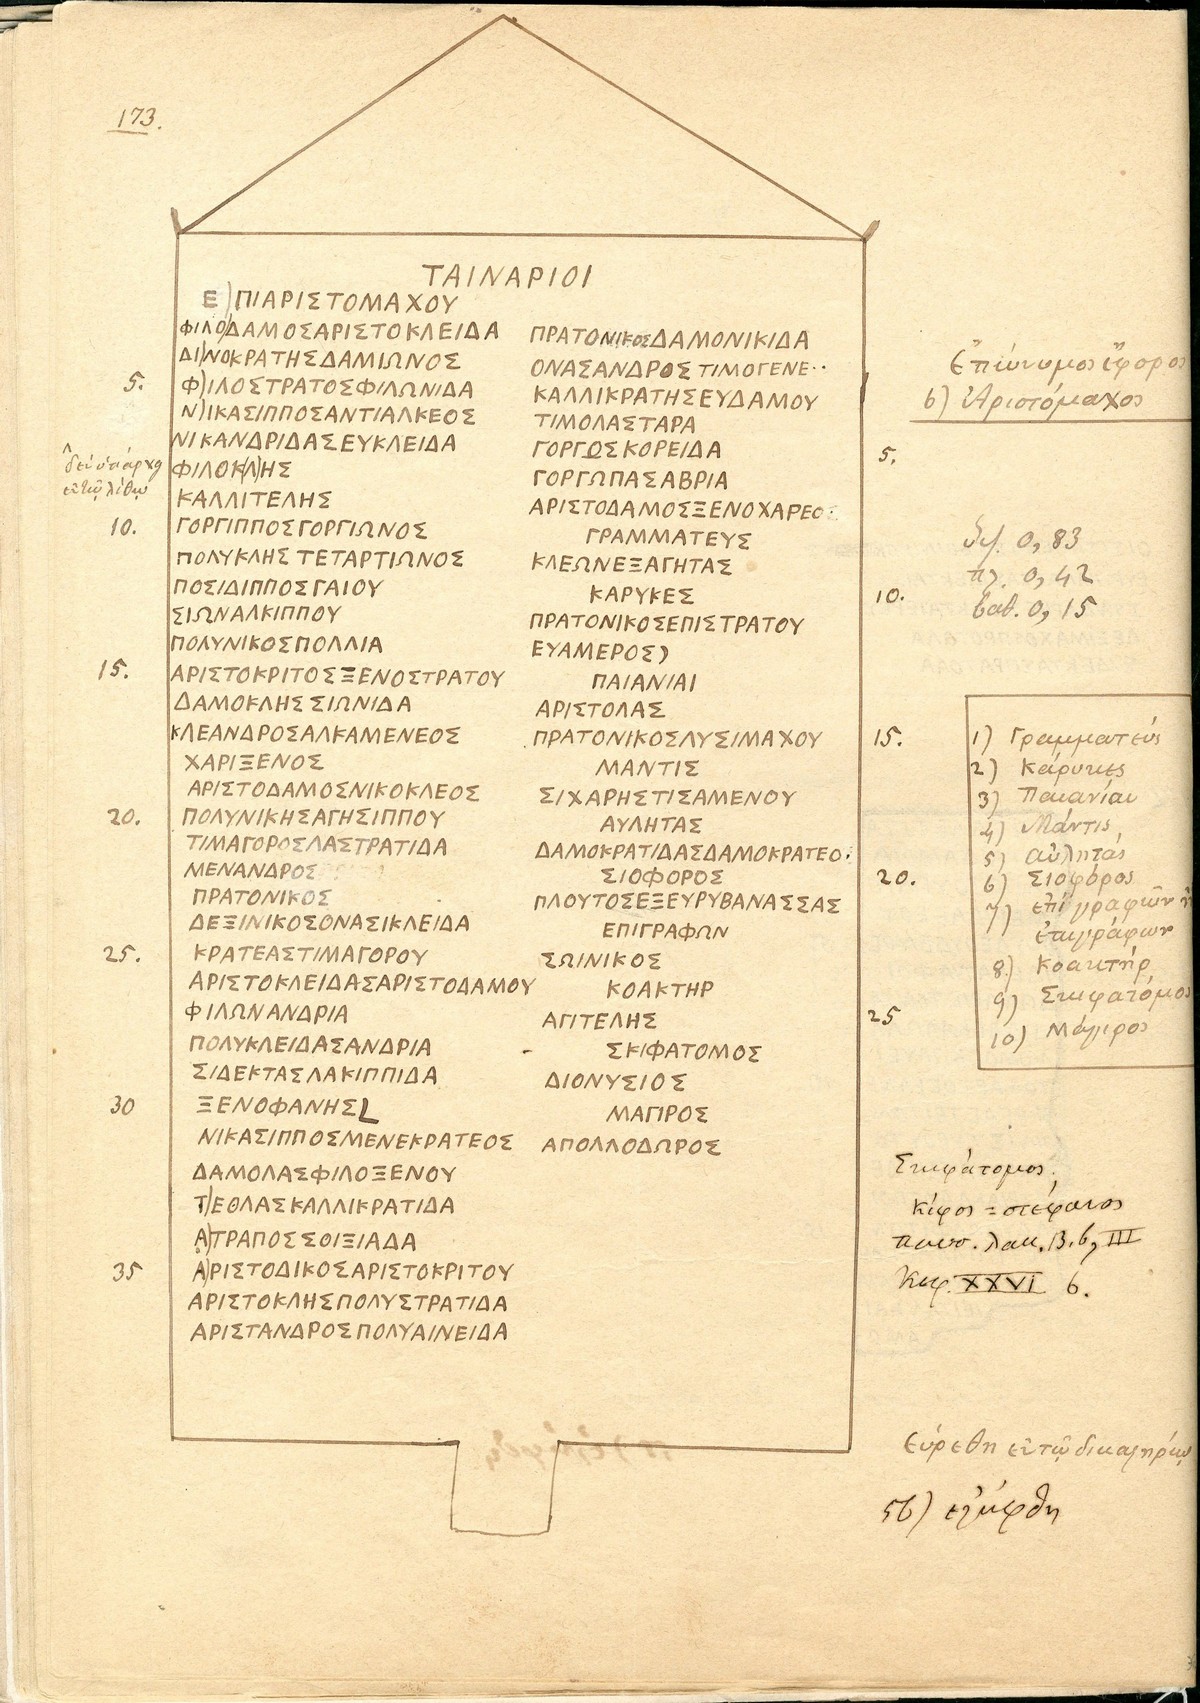 173.
ΤΑΙΝΑΡΙΟΙ
Ε)ΠΙΑΡΙΣΤΟΜΑΧΟΥ
ΦΙΛΟ)ΔΑΜΟΣΑΡΙΣΤΟΚΛΕΙΔΑ
ΔΙ)ΝΟΚΡΑΤΗΣΔΑΜΙΩΝΟΣ
5. Φ)ΙΛΟΣΤΡΑΤΟΣΦΙΛΩΝΙΔΑ
Ν)ΙΚΑΣΙΠΠΟΣΑΝΤΙΑΛΚΕΟΣ
ΝΙΚΑΝΔΡΙΔΑΣΕΥΚΛΕΙΔΑ
ΦΙΛΟΚ(Λ)ΗΣ
ΚΑΛΛΙΤΕΛΗΣ
10. ΓΟΡΓΙΠΠΟΣΓΟΡΓΙΩΝΟΣ
ΠΟΛΥΚΛΗΣΤΕΤΑΡΤΙΩΝΟΣ
ΠΟΣΙΔΙΠΠΟΣΓΑΙΟΥ
ΣΙΩΝΑΛΚΙΠΠΟΥ
ΠΟΛΥΝΙΚΟΣΠΟΛΛΙΑ
15. ΑΡΙΣΤΟΚΡΙΤΟΣΞΕΝΟΣΤΡΑΤΟΥ
ΔΑΜΟΚΛΗΣΣΙΩΝΙΔΑ
ΚΛΕΑΝΔΡΟΣΑΛΚΑΜΕΝΕΟΣ
ΧΑΡΙΞΕΝΟΣ
ΑΡΙΣΤΟΔΑΜΟΣΝΙΚΟΚΛΕΟΣ
20. ΠΟΛΥΝΙΚΗΣΑΓΗΣΙΠΠΟΥ
ΤΙΜΑΓΟΡΟΣΛΑΣΤΡΑΤΙΔΑ
ΜΕΝΑΝΔΡΟΣ
ΠΡΑΤΟΝΙΚΟΣ
ΔΕΞΙΝΙΚΟΣΟΝΑΣΙΚΛΕΙΔΑ
25. ΚΡΑΤΕΑΣΤΙΜΑΓΟΡΟΥ
ΑΡΙΣΤΟΚΛΕΙΔΑΣΑΡΙΣΤΟΔΑΜΟΥ
ΦΙΛΩΝΑΝΔΡΙΑ
ΠΟΛΥΚΛΕΙΔΑΣΑΝΔΡΙΑ
ΣΙΔΕΚΤΑΣΛΑΚΙΠΠΙΔΑ
30 ΞΕΝΟΦΑΝΗΣL
ΝΙΚΑΣΙΠΠΟΣΜΕΝΕΚΡΑΤΕΟΣ
ΔΑΜΟΛΑΣΦΙΛΟΞΕΝΟΥ
Τ)ΕΘΛΑΣΚΑΛΛΙΚΡΑΤΙΔΑ
Α)ΤΡΑΠΟΣΣΟΙΞΙΑΔΑ
35 Α)ΡΙΣΤΟΔΙΚΟΣΑΡΙΣΤΟΚΡΙΤΟΥ
ΑΡΙΣΤΟΚΛΗΣΠΟΛΥΣΤΡΑΤΙΔΑ
ΑΡΙΣΤΑΝΔΡΟΣΠΟΛΥΑΙΝΕΙΔΑ
ΠΡΑΤΟΝΙΚΟΣΔΑΜΟΝΙΚΙΔΑ
ΟΝΑΣΑΝΔΡΟΣΤΙΜΟΓΕΝΕ··
ΚΑΛΛΙΚΡΑΤΗΣΕΥΔΑΜΟΥ
ΤΙΜΟΛΑΣΤΑΡΑ
ΓΟΡΓΩΣΚΟΡΕΙΔΑ 5.
ΓΟΡΓΩΠΑΣΑΒΡΙΑ
ΑΡΙΣΤΟΔΑΜΟΣΞΕΝΟΧΑΡΕΟΣ
ΓΡΑΜΜΑΤΕΥΣ
ΚΛΕΩΝΕΞΑΓΗΤΑΣ
ΚΑΡΥΚΕΣ 10.
ΠΡΑΤΟΝΙΚΟΣΕΠΙΣΤΡΑΤΟΥ
ΕΥΑΜΕΡΟΣ)
ΠΑΙΑΝΙΑΙ
ΑΡΙΣΤΟΛΑΣ
ΠΡΑΤΟΝΙΚΟΣΛΥΣΙΜΑΧΟΥ 15.
ΜΑΝΤΙΣ
ΣΙΧΑΡΗΣΤΙΣΑΜΕΝΟΥ
ΑΥΛΗΤΑΣ
ΔΑΜΟΚΡΑΤΙΔΑΣΔΑΜΟΚΡΑΤΕΟ·
ΣΙΟΦΟΡΟΣ 20.
ΠΛΟΥΤΟΣΕΞΕΥΡΥΒΑΝΑΣΣΑΣ
ΕΠΙΓΡΑΦΩΝ
ΣΩΙΝΙΚΟΣ
ΚΟΑΚΤΗΡ
ΑΓΙΤΕΛΗΣ 25
ΣΚΙΦΑΤΟΜΟΣ
ΔΙΟΝΥΣΙΟΣ
ΜΑΓΙΡΟΣ
ΑΠΟΛΛΟΔΩΡΟΣ
δὲν ὑπάρχ
ἐν τῷ λίθῳ
Ἐπώνυμος ἔφορος
6) Ἀριστόμαχος
ὑψ. 0,83
πλ. 0,42
βαθ. 0,15
1) Γραμματεύς
2) Κάρυκες
3) Παιανίαι
4) Μάντις
5) αὐλητάς
6) Σιοφόρος
7) ἐπιγραφῶν ἢ
ἐπιγράφων
8) Κοακτήρ
9) Σκιφατόμος
10) Μάγιρος
Σκιφάτομος.
κίφος = στέφανος
παυσ. λακ. Β. 6, III
Κεφ. XXVI 6.
Εὑρέθη ἐν τῷ
56) ἐλήφθη